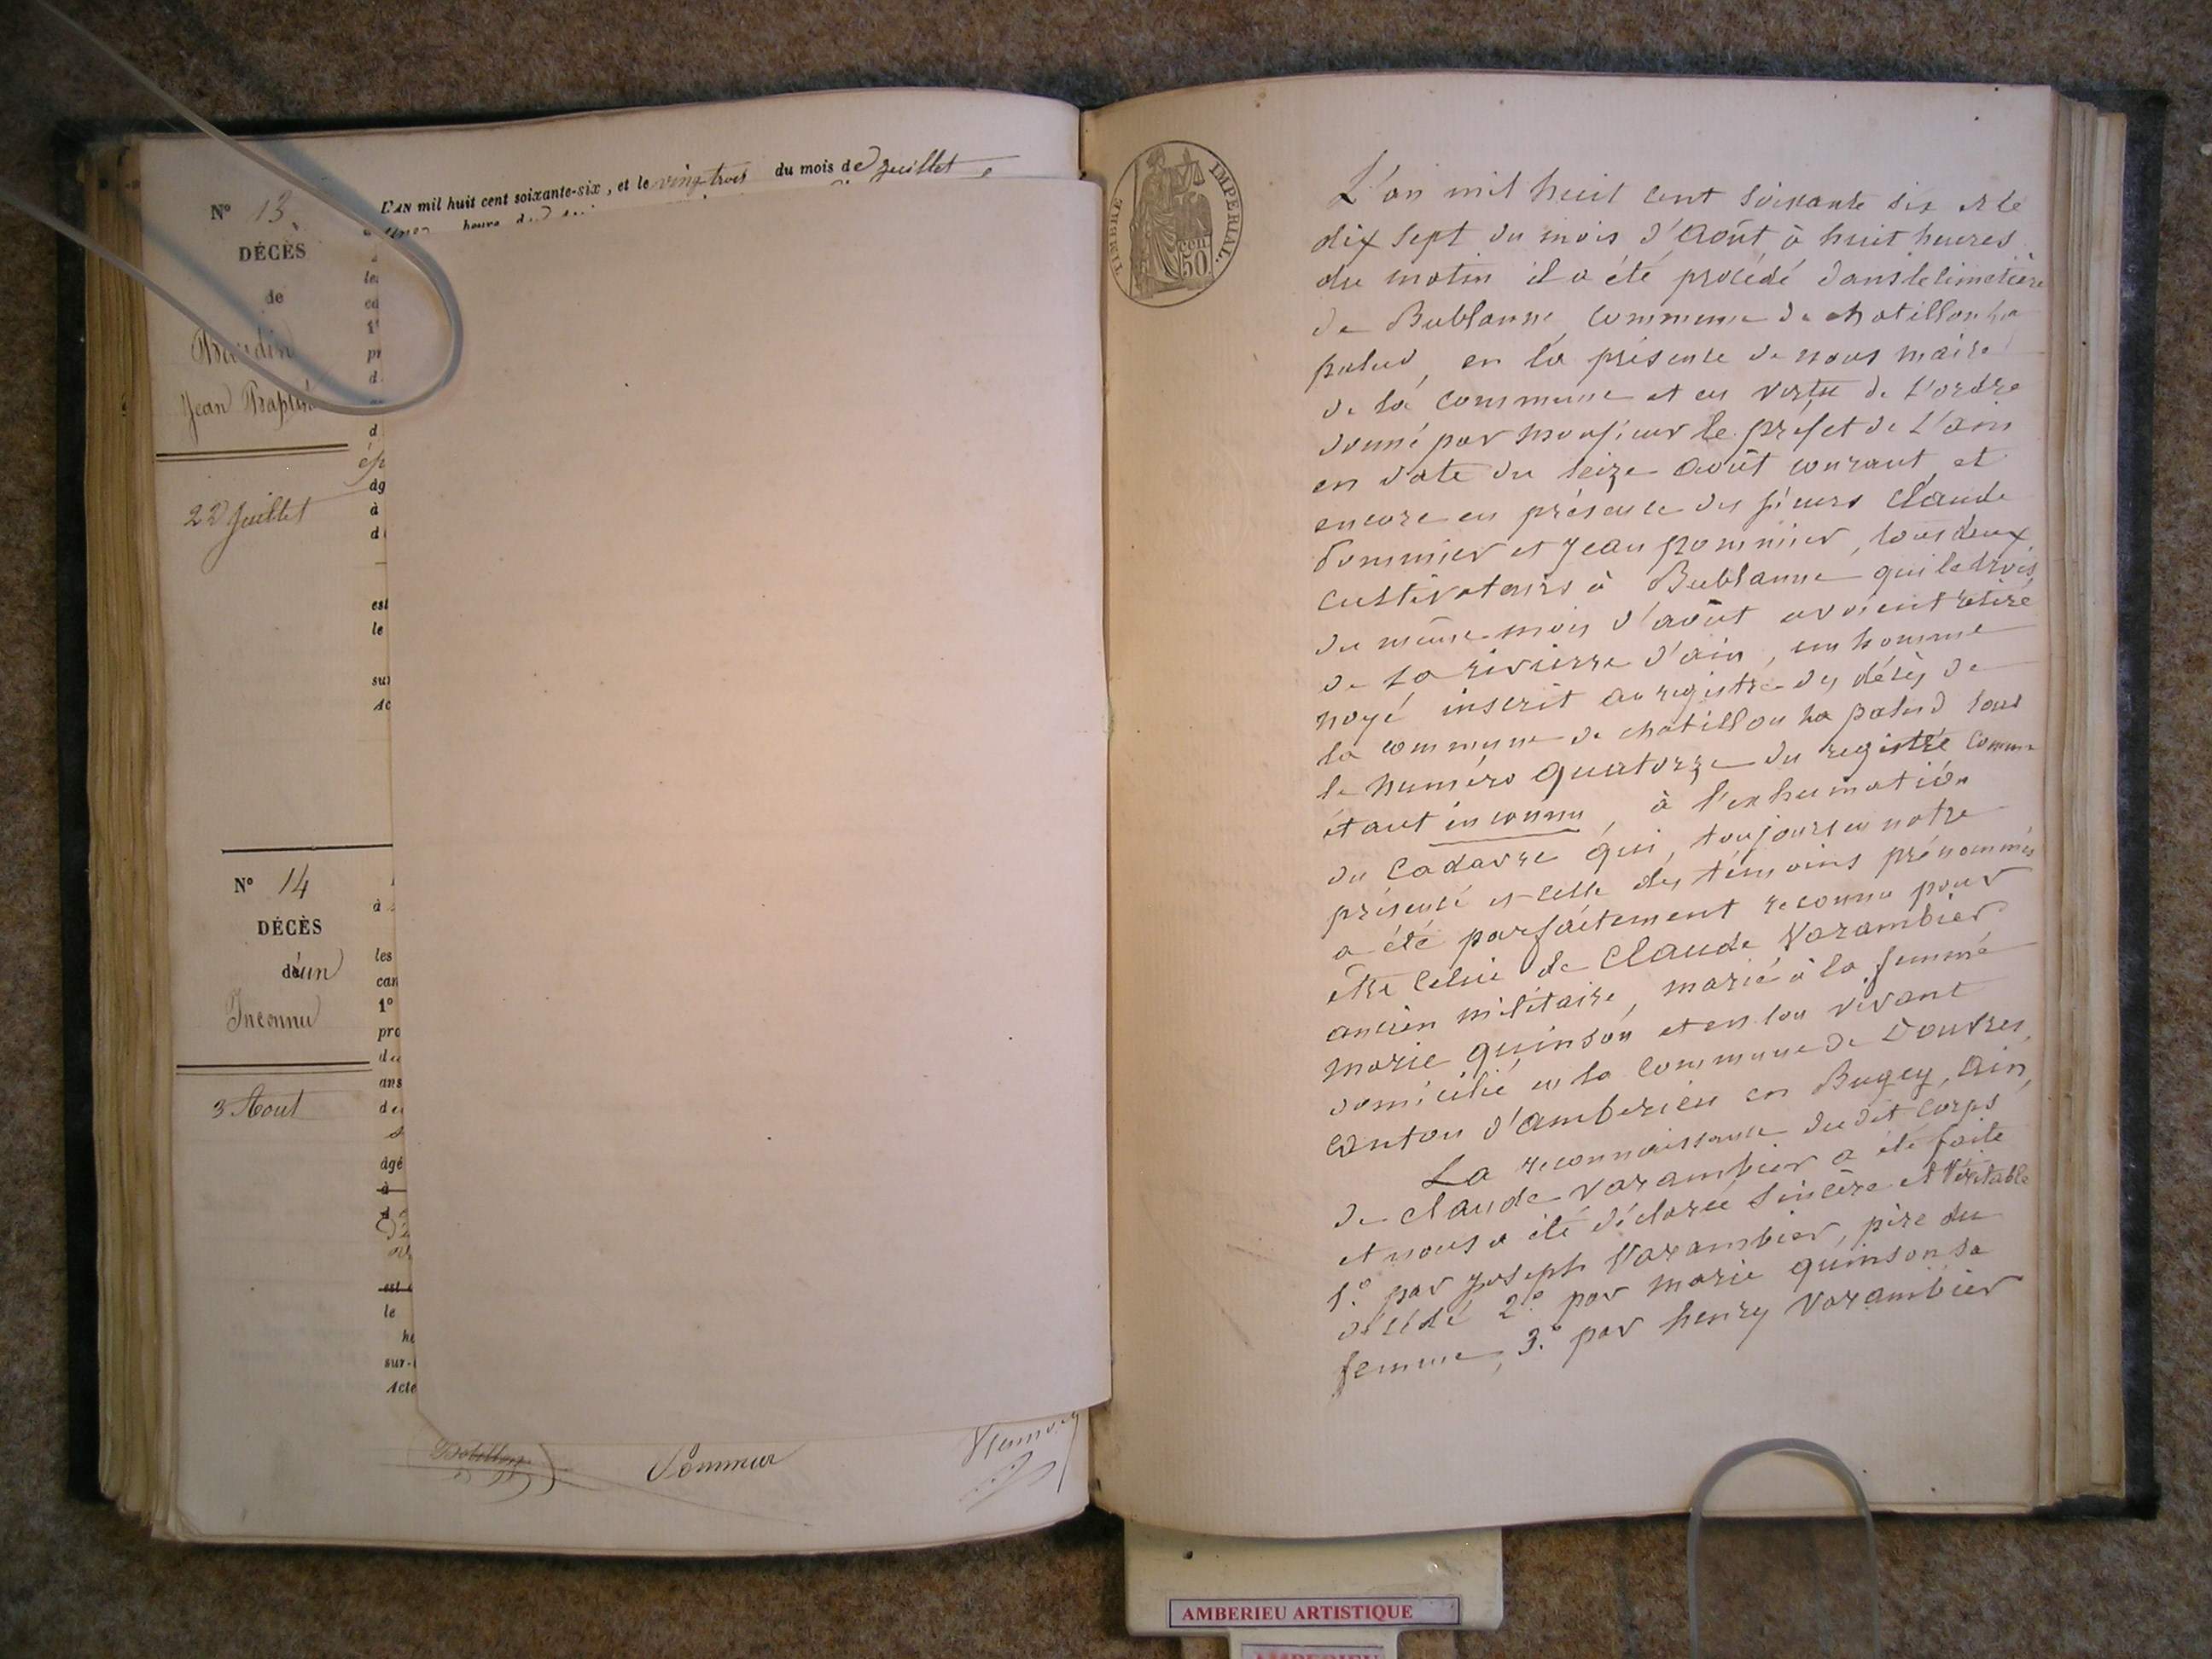 L'AN mil huit cent soixante-six, et le vingt trois du mois de Juillet
N° 13
DÉCÈS
de
Jean Baptiste
22 Juillet
N° 14
DÉCÈS
d'un
Inconnu
3 Aout
TIMBRE IMPERIAL.
50 cen
L'an mil huit cent soixante six et le
dix sept du mois d'Août à huit heures
du matin il a été procédé dans le cimetière
de Bublanne, commune de chatillon la
palud, en la présence de nous maire
de la commune et en vertu de l'ordre
donné par monsieur le préfet de l'ain
en date du seize août courant, et
encore en présence des sieurs Claude
Pommier et Jean pommier, tous deux
cultivateurs à Bublanne qui le trois
du même mois d'août avoient retiré
de la rivierre d'ain, un homme
noyé inscrit au registre des décès de
la commune de chatillon la palud sous
le numéro quatorze du registre comme
étant inconnu, à l'exhumation
du cadavre qui, toujours en notre
présence et celle des témoins prénommés
a été parfaitement reconnu pour
etre celui de Claude Varambier
ancien militaire, marié à la femme
marie quinson et en son vivant
domicilié en la commune de Douvres,
canton d'amberieu en Bugey, Ain,
La reconnaissance dudit corps
de claude varambier a été faite
et nous a été déclarée sincère et véritable
1.° par joseph Varambier, père du
décédé 2.° par marie quinson sa
femme, 3.° par henry varambier
Pommier
AMBERIEU ARTISTIQUE